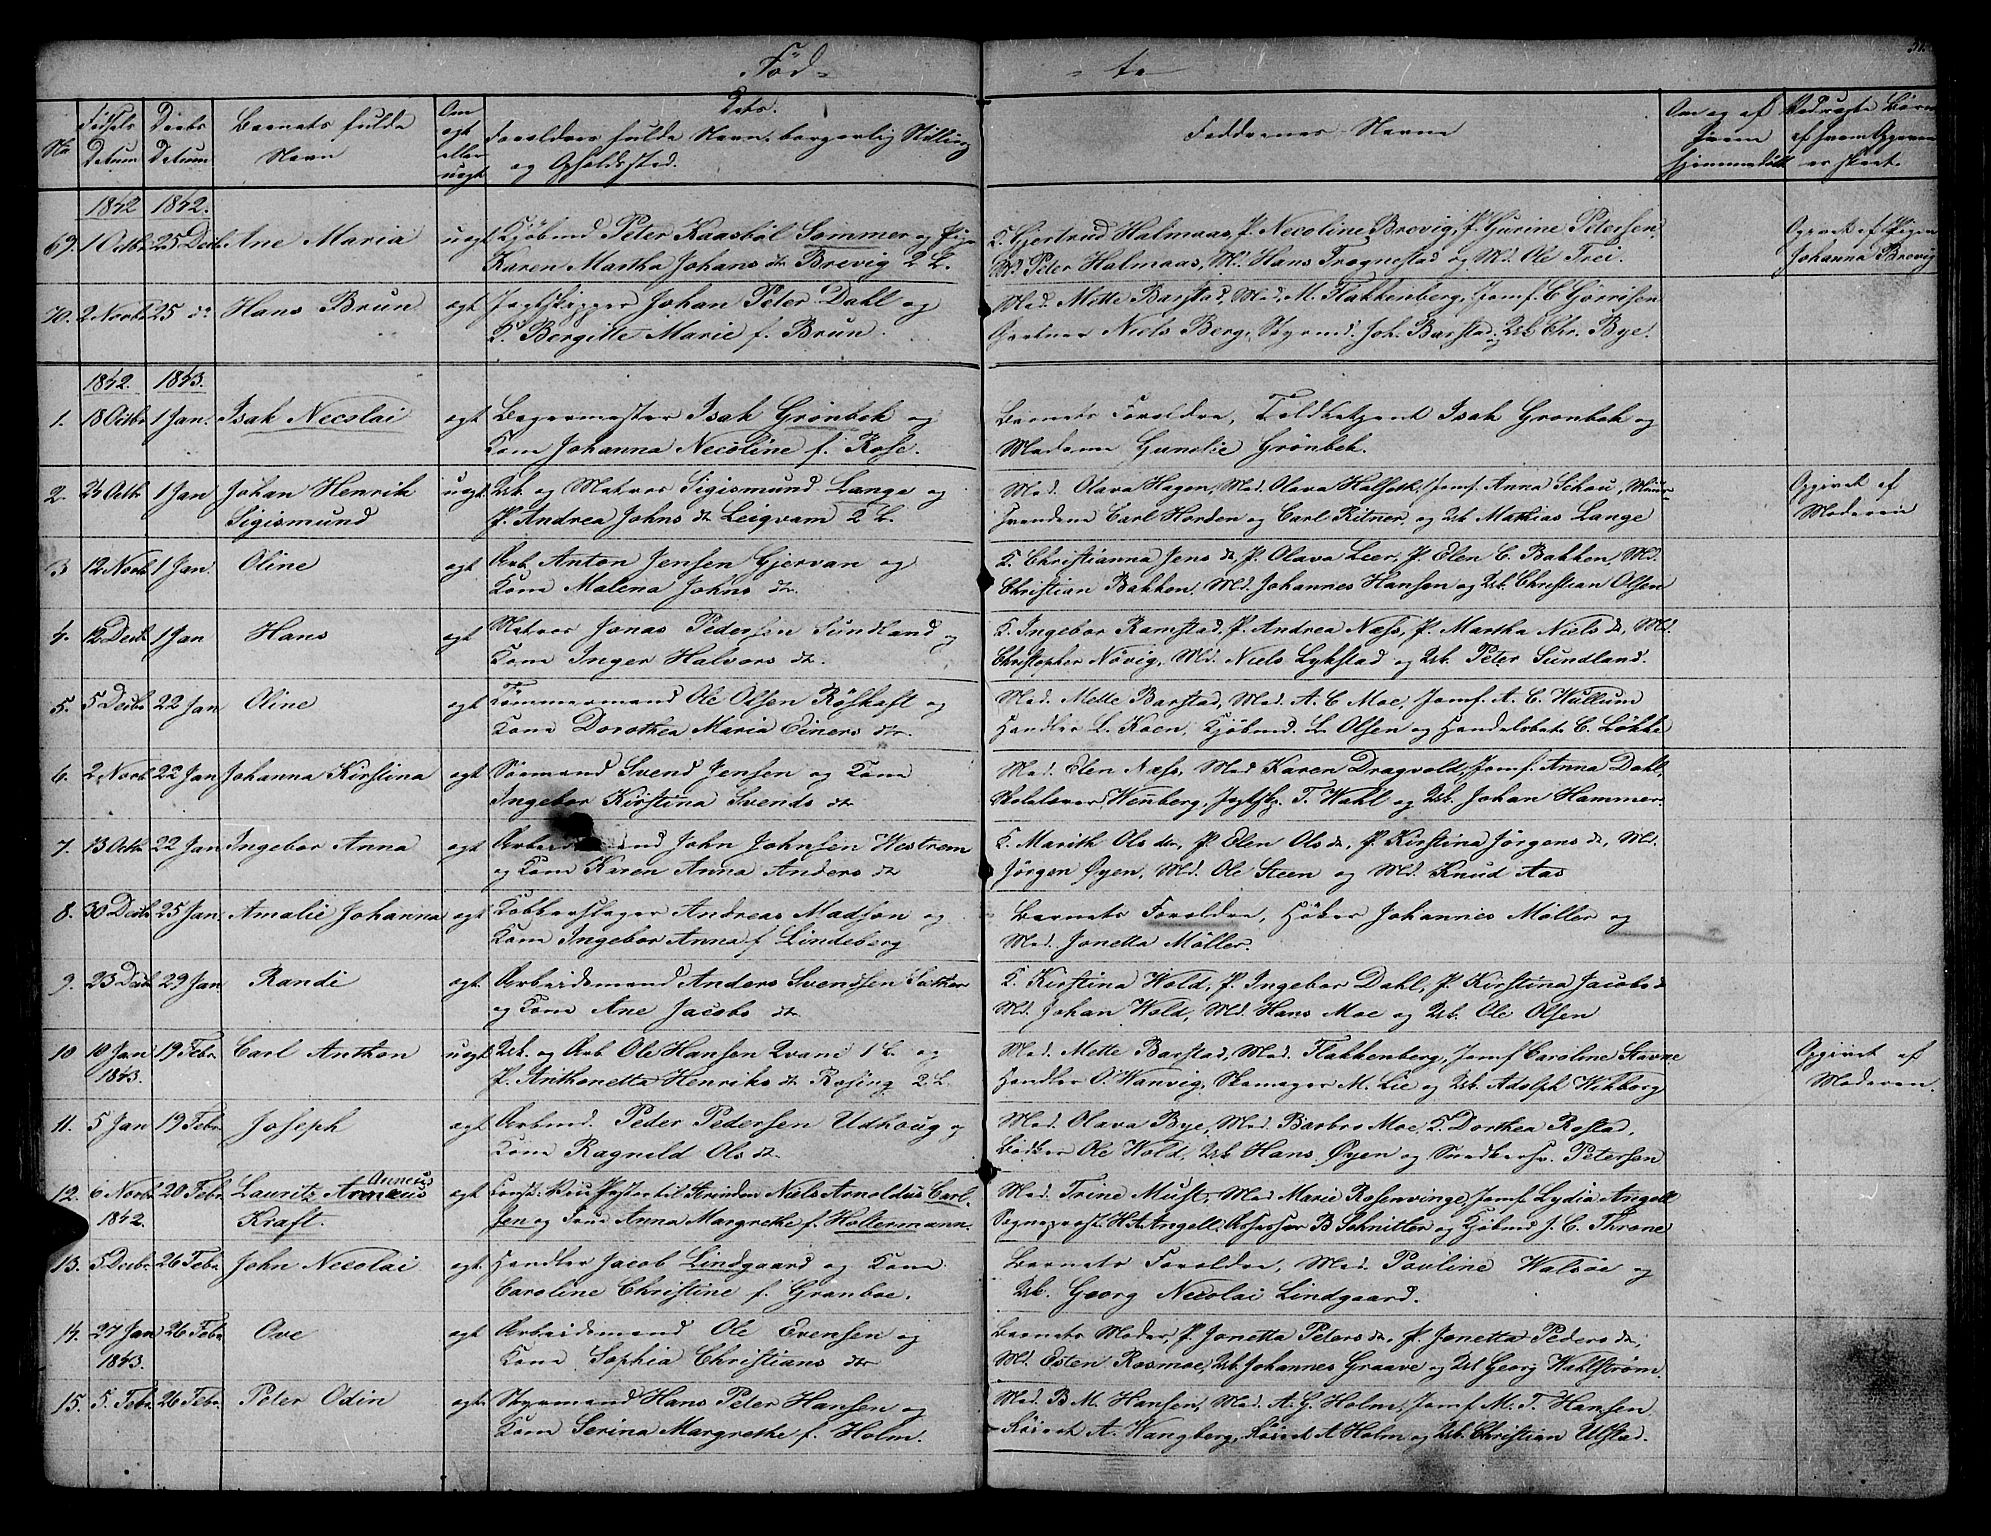 Fød-
-te
31.
No
Fødsels Datum
Daabs Datum
Barnets fulde Navn
Om ægte eller uægte
Dets
Forældres fulde Navn, borgerlig Stilling og Opholdssted.
Faddernes Navne
Om og af hvem hjemmedøbt
Vedrøgte Børn af hvem Opgaven er skeet.
1842 1842.
69. 1 Octbr 25 Decb Ane Maria uægt Kjøbmd Peter Kaasbøl Sommer og Pige
Karen Martha Johans dr Brevig 2 L.
K. Gjertrud Halmaas, P. Necoline Brevig, P. Gurine Petersen,
Md Peter Halmaas, Md. Hans Trognestad og Md. Ole Frei.
Opgivet af Pigen
Johanna Brevig
70. 2 Novbr 25 do Hans Brun ægt Jagtskipper Johan Peter Dahl og
K. Bergitte Marie f. Brun.
Mad. Mette Barstad, Mad. M. Flakkenberg, Jomf. C Gjørrisen
Gartner Niels Berg, Styrmd. Joh. Barstad og Uk Chr. Bye.
1842. 1843.
1. 18 Octbr 1 Jan. Isak Necolai ægt Bagermester Isak Grønbek og
Kone Johanna Necoline f. Rose.
Barnets Forældre, Toldbetjent Isak Grønbek og
Madame Gunolie Grønbek.
2. 24 Octb 1 Jan Johan Henrik
Sigismund
uægt Uk. og Matros Sigismund Lange og
P. Andrea Johns dr Leigvam 2 L.
Mad. Olava Hagen, Mad. Olava Halseth, Jomf. Anna Schou, Muur-
svendene Carl Horden og Carl Ritner, og Uk Mathias Lange
Opgivet af
Moderen
3 12 Novb 1 Jan. Oline ægt Arb. Anton Jensen Gjervan og
Kone Malena Johns dr.
K. Christianna Jens dr, P. Olava Leer, P. Elen C. Bakken, Md.
Christian Bakken, Md. Johannes Hansen og Uk. Christian Olsen
4. 12 Decb 1 Jan Hans ægt Matros Jonas Pedersen Sundland og
Kone Inger Halvors dr.
K. Ingebor Ramstad, P. Andrea Næss, P. Martha Niels dr, Md.
Christopher Nøvig, Md. Niels Lykstad og Uk. Peter Sundland.
5. 5 Decbr 22 Jan Oline ægt Tømmermand Ole Olsen Røskaft og
Kone Dorothea Maria Einers dr.
Mad. Mette Barstad, Mad. A. C Moe, Jomf. A. C. Wullum
Handler L. Koen, Kjøbmd. L. Olsen og Handelsbet. C. Løkke
6. 2 Novb 22 Jan Johanna Kirstina ægt Sømand Svend Jensen og Kone
Ingebor Kirstina Svends dr
Mad. Elen Næss, Mad Karen Dragvold, Jomf. Anna Dahl,
Wenberg, Jagtsk. T. Wahl og Uk. Johan Hammer.
7. 13 Octb 22 Jan Ingebor Anna ægt Arbeidsmand John Johnsen Westrem
og Kone Karen Anna Anders dr
K. Marith Ols dr, P. Elen Ols dr, P. Kirstina Jørgens dr, Md.
Jørgen Øyen, Md. Ole Steen og Md. Knud Aas
8. 30 Decb 25 Jan Amalie Johanna ægt Kobberslager Andreas Madson og
Kone Ingebor Anna f Lindeberg
Barnets Forældre, Høker Johannes Møller og
Mad. Jonetta Møller.
9. 23 Decb 29 Jan. Randi ægt Arbeidsmand Anders Svendsen Sæther
og Kone Ane Jacobs dr
K. Kirstina Wold, P. Ingebor Dahl, P. Kirstina Jacobs d
Md. Johan Wold, Md. Hans Moe og Uk. Ole Olsen
10 10 Jan
1843.
19 Febr. Carl Anthon uægt Uk. og Arb Ole Hansen Qvam 1 L. og
P. Anthonetta Henriks dr Rosing 2 L.
Mad. Mette Barstad, Mad. Flakkenberg, Jomf Caroline Stavne
Handler O. Wanvig, Skomager M. Lie og Uk. Adolph Wikborg
Opgivet af
Moderen.
11. 5 Jan 19 Febr Joseph ægt Arbmd. Peder Pedersen Udhoug og
Kone Ragnild Ols dr.
Mad. Olava Bye, Mad. Barbro Moe, K. Dorthea Rostad,
Bødker Ole Wold, Uk Hans Øyen og Snedkersv. Petersen
12. 6 Novbr
1842.
20 Febr. Lauritz Annæus Annæus
Kraft.
ægt Const. Præst til Strinden Niels Arnoldus Carl-
sen og Frue Anna Margrethe f. Holtermann.
Mad. Trine Must, Mad Marie Rosenvinge, Jomf Lydia Angell
Sognepræst H. A. Angell, Assessor B Schnitler og Kjøbmd J. C. Throne
13. 5 Decbr 26 Febr John Necolai ægt Handler Jacob Lindgaard og Kone
Caroline Christine f. Granboe.
Barnets Forældre, Mad. Pauline Walsøe og
Uk. Georg Necolai Lindgaard.
14. 27 Jan
1843.
26 Febr Ove ægt Arbeidsmand Ole Evensen og
Kone Sophia Christians dr
Barnets Moder, P. Jonetta Peters dr, P. Jonetta Peders dr,
Md. Esten Rosmoe, Uk Johannes Graave og Uk Georg Wahlstrøm.
15. 5. Febr 26 Febr. Peter Odin ægt Styrmand Hans Peter Hansen og
Kone Serina Margrethe f. Holm.
Mad. B M. Hansen, Mad. A. G. Holm, Jomf M. T. Hansen
A. Wangberg, A Holm og Uk. Christian Ulstad.